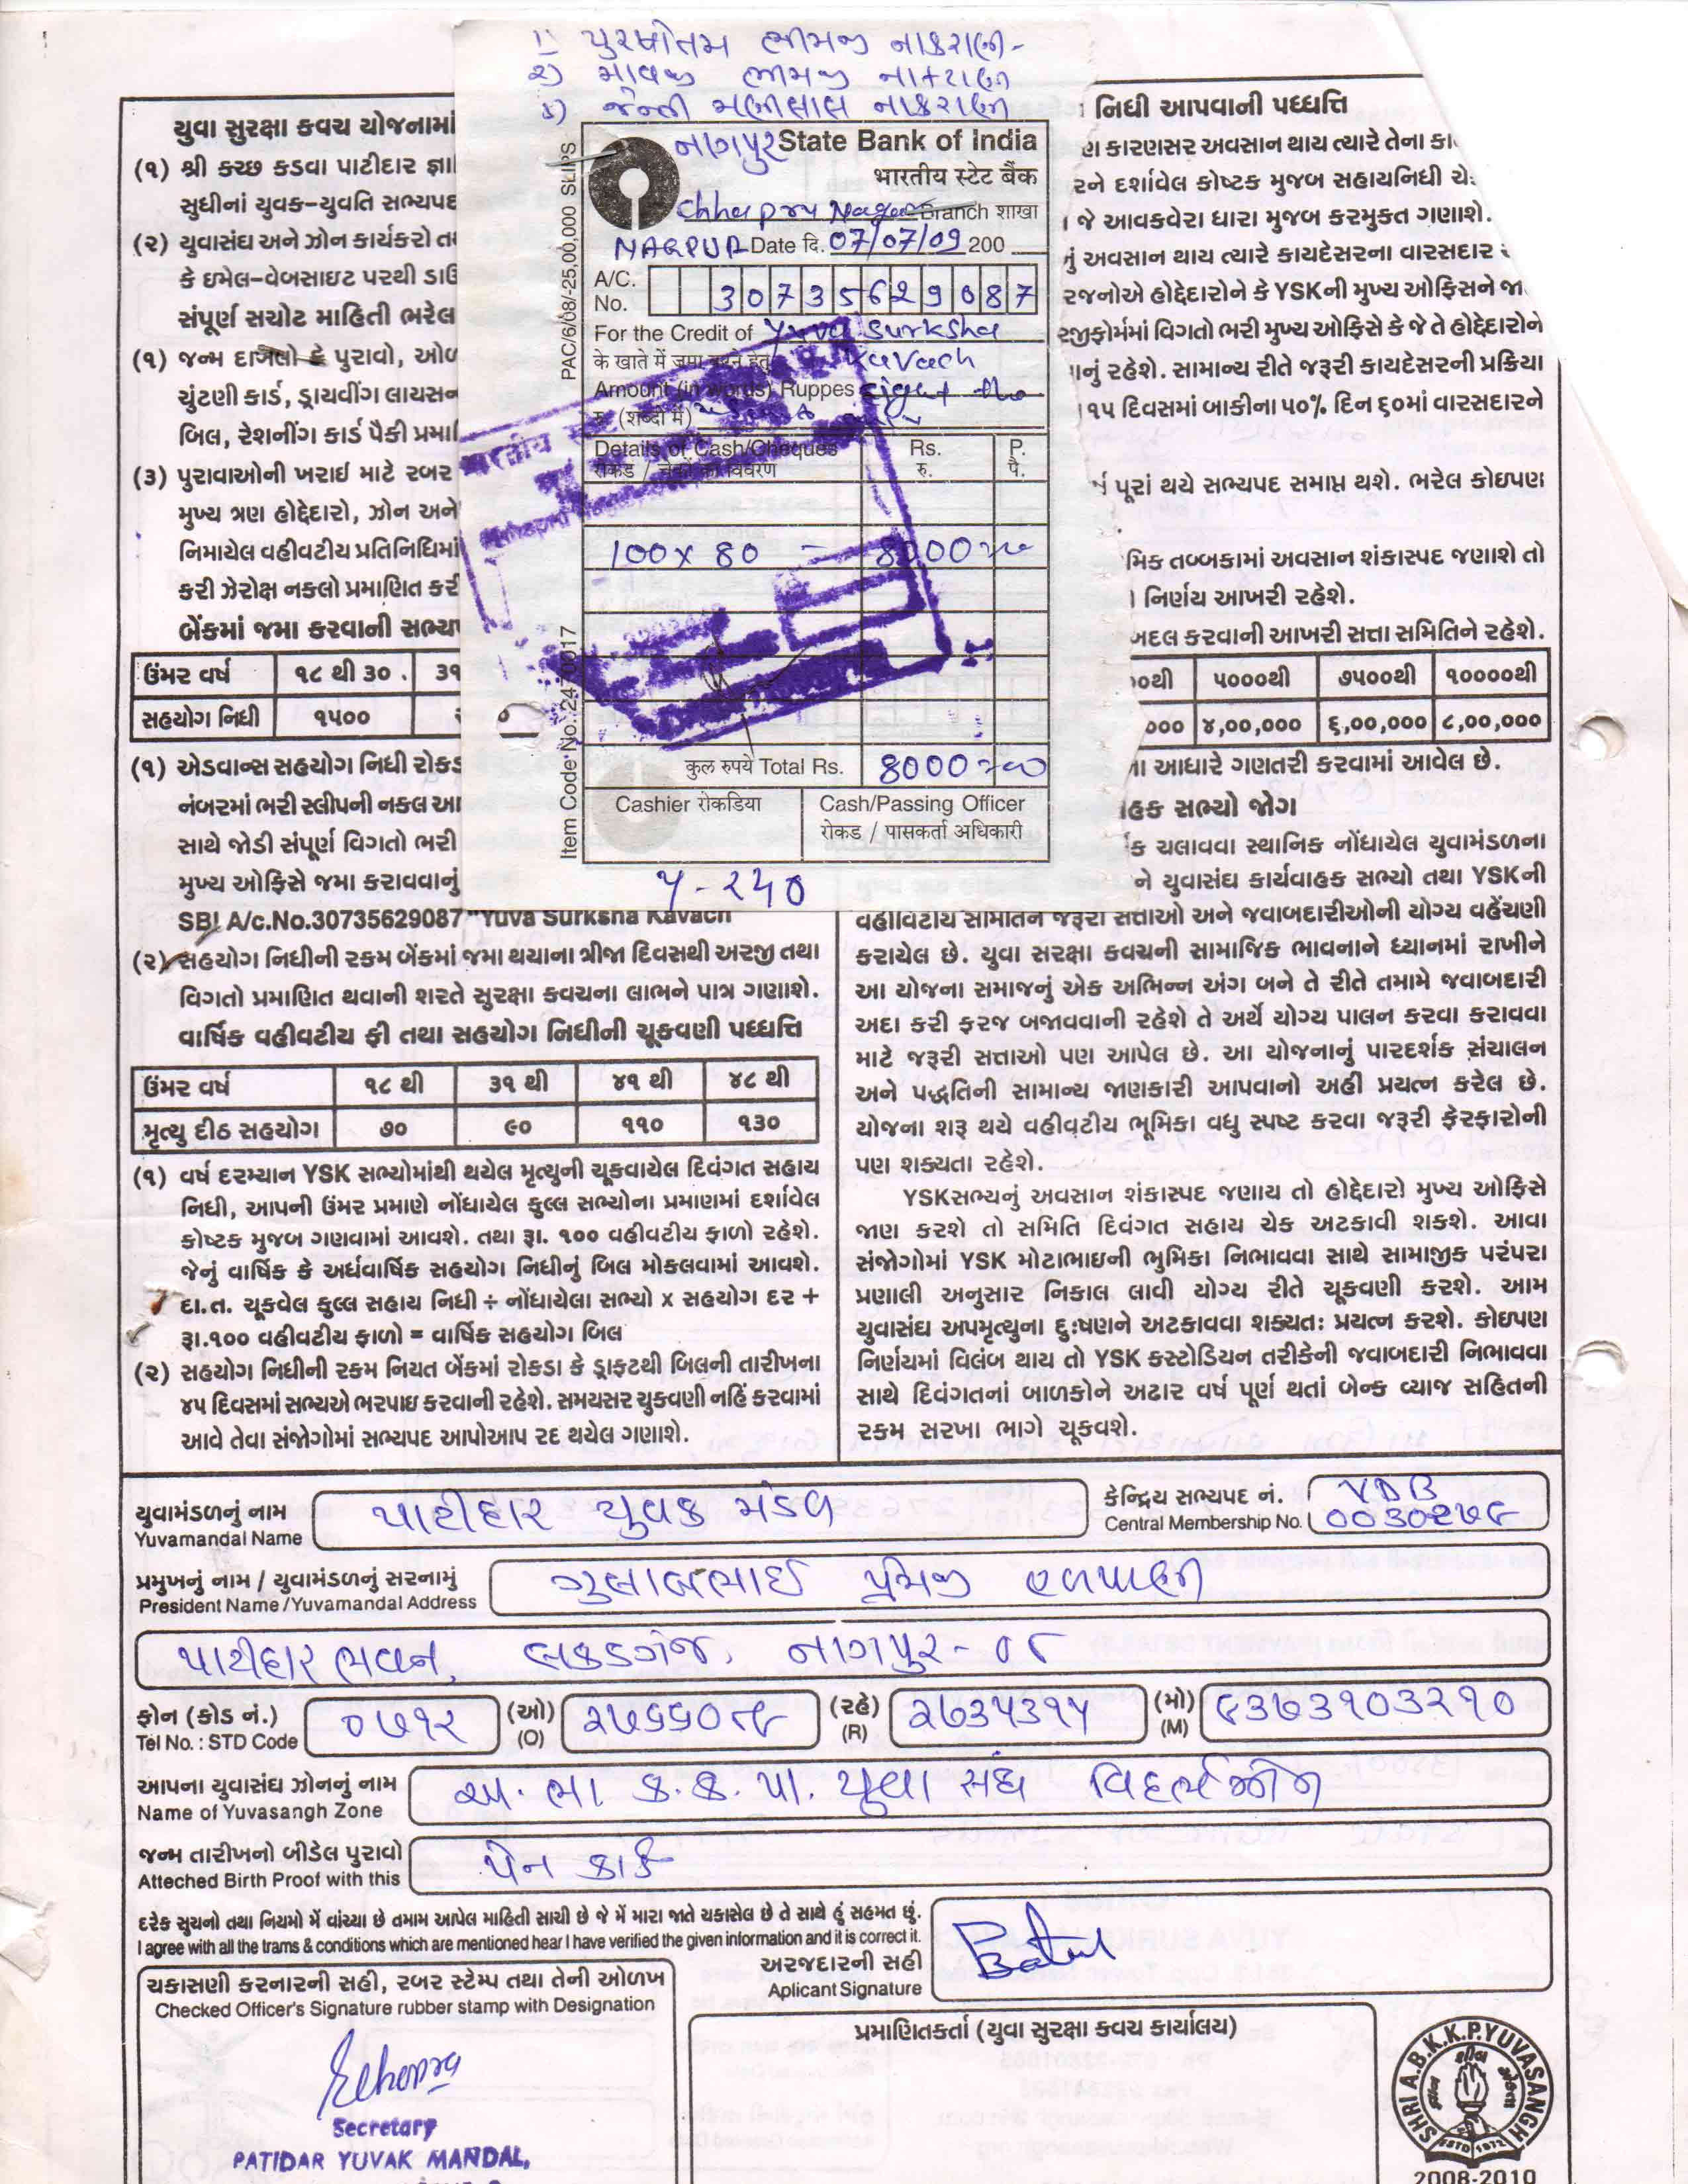 ૧) પુરષોતમ ભીમજી નાકરાણી-
૨) માવજી ભીમજી નાકરાણી
૩) જેન્તી મણીલાલ નાકરાણી
નાગપુર State Bank of India
भारतीय स्टेट बैंक
Chhapru Nagar Branch शाखा
NAGPUR Date दि. 07/07/09 200
A/C. No. 30735629087
For the Credit of Yuva Surksha
के खाते में जमा करने हेतु Kavach
Amount (in words) Ruppes Eight tho
रु. (शब्दों में)
Details of Cash/Cheques Rs. P.
रोकड / चेकों का विवरण रु. पै.
100 x 80 = 8000=00
कुल रुपये Total Rs. 8000=00
Cashier रोकडिया Cash/Passing Officer
रोकड / पासकर्ता अधिकारी
PAC/6/08/-25,00,000 SLIPS
Item Code No.:24 70017
Y-240
યુવા સુરક્ષા કવચ યોજનામાં
(૧) શ્રી કચ્છ કડવા પાટીદાર જ્ઞા
સુધીનાં યુવક-યુવતિ સભ્યપદ
(૨) યુવાસંઘ અને ઝોન કાર્યકરો ત
કે ઇમેલ-વેબસાઇટ પરથી ડાઉ
સંપૂર્ણ સચોટ માહિતી ભરેલ
(૧) જન્મ દાખલો કે પુરાવો, ઓળ
ચુંટણી કાર્ડ, ડ્રાયવીંગ લાયસન
બિલ, રેશનીંગ કાર્ડ પૈકી પ્રમા
(૩) પુરાવાઓની ખરાઇ માટે રબર
મુખ્ય ત્રણ હોદ્દેદારો, ઝોન અને
નિમાયેલ વહીવટીય પ્રતિનિધિમાં
કરી ઝેરોક્ષ નકલો પ્રમાણિત કરી
બેંકમાં જમા કરવાની સભ્ય
ઉંમર વર્ષ ૧૮ થી ૩૦ . ૩૧
સહયોગ નિધી ૧૫૦૦
(૧) એડવાન્સ સહયોગ નિધી રોકડ
નંબરમાં ભરી સ્લીપની નકલ આ
સાથે જોડી સંપૂર્ણ વિગતો ભરી
મુખ્ય ઓફિસે જમા કરાવવાનું
SBI A/c.No.30735629087 "Yuva Surksha Kavach
(૨) સહયોગ નિધીની રકમ બેંકમાં જમા થયાના ત્રીજા દિવસથી અરજી તથા
વિગતો પ્રમાણિત થવાની શરતે સુરક્ષા કવચના લાભને પાત્ર ગણાશે.
વાર્ષિક વહીવટીય ફી તથા સહયોગ નિધીની ચૂકવણી પધ્ધતિ
ઉંમર વર્ષ ૧૮ થી ૩૧ થી ૪૧ થી ૪૮ થી
મૃત્યુ દીઠ સહયોગ ૭૦ ૯૦ ૧૧૦ ૧૩૦
(૧) વર્ષ દરમ્યાન YSK સભ્યોમાંથી થયેલ મૃત્યુની ચૂકવાયેલ દિવંગત સહાય
નિધી, આપની ઉંમર પ્રમાણે નોંધાયેલ કુલ્લ સભ્યોના પ્રમાણમાં દર્શાવેલ
કોષ્ટક મુજબ ગણવામાં આવશે. તથા રૂા. ૧૦૦ વહીવટીય ફાળો રહેશે.
જેનું વાર્ષિક કે અર્ધવાર્ષિક સહયોગ નિધીનું બિલ મોકલવામાં આવશે.
દા.ત. ચૂકવેલ કુલ્લ સહાય નિધી ÷ નોંધાયેલા સભ્યો x સહયોગ દર +
રૂા.૧૦૦ વહીવટીય ફાળો = વાર્ષિક સહયોગ બિલ
(૨) સહયોગ નિધીની રકમ નિયત બેંકમાં રોકડા કે ડ્રાફ્ટથી બિલની તારીખના
૪૫ દિવસમાં સભ્યએ ભરપાઇ કરવાની રહેશે. સમયસર ચુકવણી નહિં કરવામાં
આવે તેવા સંજોગોમાં સભ્યપદ આપોઆપ રદ થયેલ ગણાશે.
નિધી આપવાની પધ્ધતિ
કારણસર અવસાન થાય ત્યારે તેના કા
રને દર્શાવેલ કોષ્ટક મુજબ સહાયનિધી ચે
જે આવકવેરા ધારા મુજબ કરમુક્ત ગણાશે.
નું અવસાન થાય ત્યારે કાયદેસરના વારસદાર
રજનોએ હોદ્દેદારોને કે YSKની મુખ્ય ઓફિસને જા
રજીફોર્મમાં વિગતો ભરી મુખ્ય ઓફિસે કે જે તે હોદ્દેદારોને
નું રહેશે. સામાન્ય રીતે જરૂરી કાયદેસરની પ્રક્રિયા
૧૫ દિવસમાં બાકીના ૫૦% દિન ૬૦માં વારસદારને
પૂરાં થયે સભ્યપદ સમાપ્ત થશે. ભરેલ કોઇપણ
મિક તબ્બકામાં અવસાન શંકાસ્પદ જણાશે તો
નિર્ણય આખરી રહેશે.
બદલ કરવાની આખરી સત્તા સમિતિને રહેશે.
૦૦થી ૫૦૦૦થી ૭૫૦૦થી ૧૦૦૦૦થી
૦૦૦ ૪,૦૦,૦૦૦ ૬,૦૦,૦૦૦ ૮,૦૦,૦૦૦
ના આધારે ગણતરી કરવામાં આવેલ છે.
હક સભ્યો જોગ
ક ચલાવવા સ્થાનિક નોંધાયેલ યુવામંડળના
ને યુવાસંઘ કાર્યવાહક સભ્યો તથા YSKની
વહીવટીય સમિતિને જરૂરી સત્તાઓ અને જવાબદારીઓની યોગ્ય વહેંચણી
કરાયેલ છે. યુવા સરક્ષા કવચની સામાજિક ભાવનાને ધ્યાનમાં રાખીને
આ યોજના સમાજનું એક અભિન્ન અંગ બને તે રીતે તમામે જવાબદારી
અદા કરી ફરજ બજાવવાની રહેશે તે અર્થે યોગ્ય પાલન કરવા કરાવવા
માટે જરૂરી સત્તાઓ પણ આપેલ છે. આ યોજનાનું પારદર્શક સંચાલન
અને પદ્ધતિની સામાન્ય જાણકારી આપવાનો અહી પ્રયત્ન કરેલ છે.
યોજના શરૂ થયે વહીવટીય ભૂમિકા વધુ સ્પષ્ટ કરવા જરૂરી ફેરફારોની
પણ શક્યતા રહેશે.
YSKસભ્યનું અવસાન શંકાસ્પદ જણાય તો હોદ્દેદારો મુખ્ય ઓફિસે
જાણ કરશે તો સમિતિ દિવંગત સહાય ચેક અટકાવી શકશે. આવા
સંજોગોમાં YSK મોટાભાઇની ભુમિકા નિભાવવા સાથે સામાજીક પરંપરા
પ્રણાલી અનુસાર નિકાલ લાવી યોગ્ય રીતે ચૂકવણી કરશે. આમ
યુવાસંઘ અપમૃત્યુના દુઃષણને અટકાવવા શક્યતઃ પ્રયત્ન કરશે. કોઇપણ
નિર્ણયમાં વિલંબ થાય તો YSK કસ્ટોડિયન તરીકેની જવાબદારી નિભાવવા
સાથે દિવંગતનાં બાળકોને અઢાર વર્ષ પૂર્ણ થતાં બેન્ક વ્યાજ સહિતની
રકમ સરખા ભાગે ચૂકવશે.
યુવામંડળનું નામ પાટીદાર યુવક મંડળ કેન્દ્રિય સભ્યપદ નં. VDB
Yuvamandal Name Central Membership No. 0030૨૭૯
પ્રમુખનું નામ / યુવામંડળનું સરનામું ગુલાબભાઈ પ્રેમજી હળપાણી
President Name/Yuvamandal Address
પાટીદાર ભવન, લકડગંજ, નાગપુર-૦૮
ફોન (કોડ નં.) ૦૭૧૨ (ઓ) ૨૭૬૬૦૮૯ (રહે) ૨૭૩૫૩૧૫ (મો) ૯૩૭૩૧૦૩૨૧૦
Tel No. : STD Code (O) (R) (M)
આપના યુવાસંઘ ઝોનનું નામ અ. ભા. ક. ક. પા. યુવા સંઘ વિદર્ભ ઝોન
Name of Yuvasangh Zone
જન્મ તારીખનો બીડેલ પુરાવો પેન કાર્ડ
Atteched Birth Proof with this
દરેક સુચનો તથા નિયમો મેં વાંચ્યા છે તમામ આપેલ માહિતી સાચી છે જે મેં મારા જાતે ચકાસેલ છે તે સાથે હું સહમત છું.
I agree with all the trams & conditions which are mentioned hear I have verified the given information and it is correct it.
અરજદારની સહી
Aplicant Signature
ચકાસણી કરનારની સહી, રબર સ્ટેમ્પ તથા તેની ઓળખ
Checked Officer's Signature rubber stamp with Designation
પ્રમાણિતકર્તા (યુવા સુરક્ષા કવચ કાર્યાલય)
Secretary
PATIDAR YUVAK MANDAL,
SHRI A.B.K.K.P.YUVASANGH
ESTD 1972
2008-2010